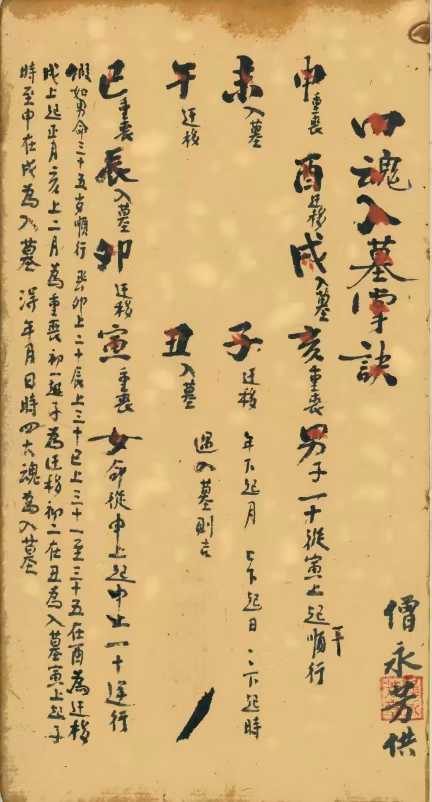 四魂入墓掌訣
僧永芳供
申重喪 酉迁移 戌入墓 亥重喪 男子一十從寅上起順行
未入墓 子迁移 年下起月 下起日 下起時
午迁移 丑入墓 遇入墓則吉
巳重喪 辰入墓 卯迁移 寅重喪 女命從申上起申上一十逆行
假如男命三十五岁順行 卯上二十辰上三十巳上三十一至三十五在酉為迁移
戌上起正月亥上二月為重喪初一起子為迁移初二在丑為入墓寅上起子
時至申在戌為入墓 得年月日時四大魂為入墓